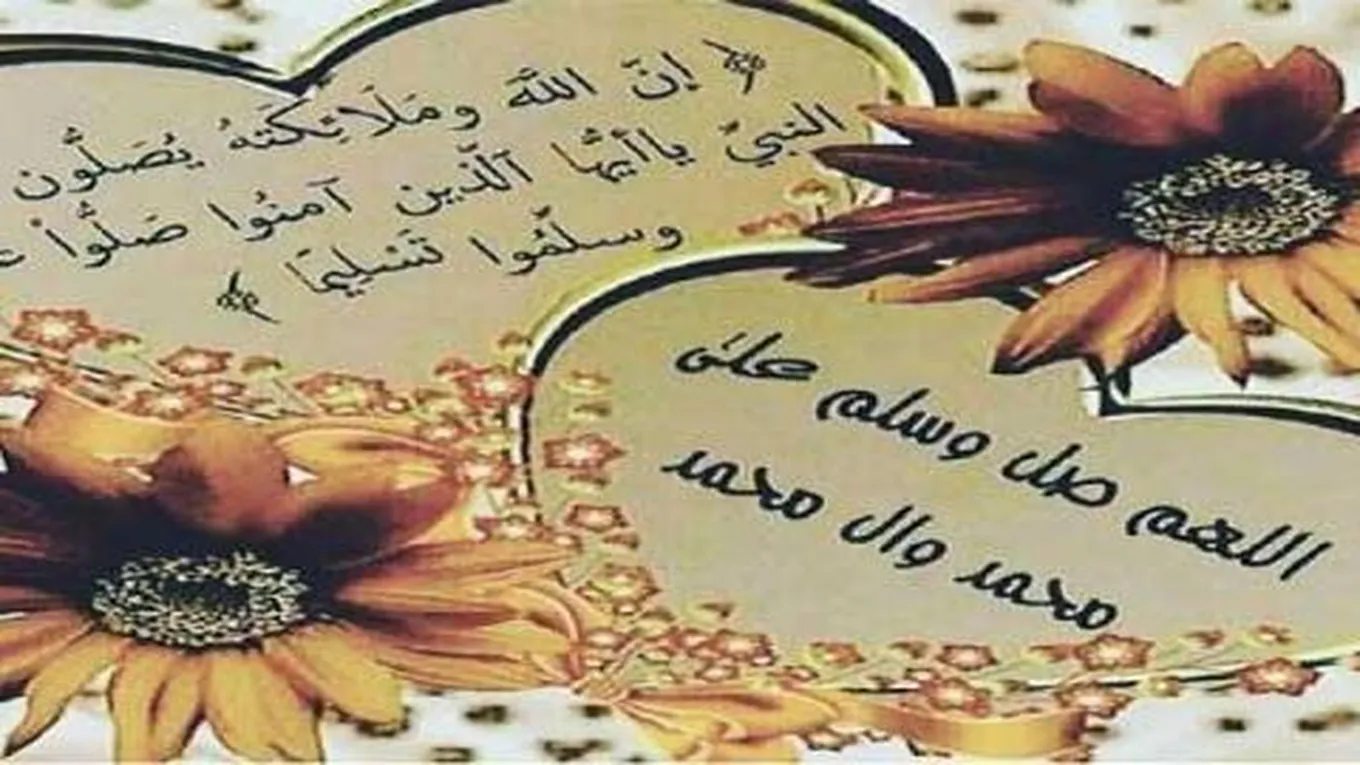 ﴿ إنّ اللّٰهَ ومَلَائِكَتهُ يُصَلُّون
النبيّ ياأيُّها آلّذين آمنُوا صَلُّواْ
وسلّمُوا تَسْلِيمًا ﴾
اللهم صل وسلم على
محمد وال محمد